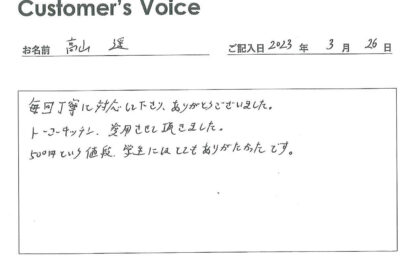 Customer's Voice
お名前 高山 遥 ご記入日 2023 年 3 月 26 日
毎回丁寧に対応して下さり、ありがとうございました。
トーコーキッチン、愛用させて頂きました。
500円という値段、学生にはとてもありがたかったです。